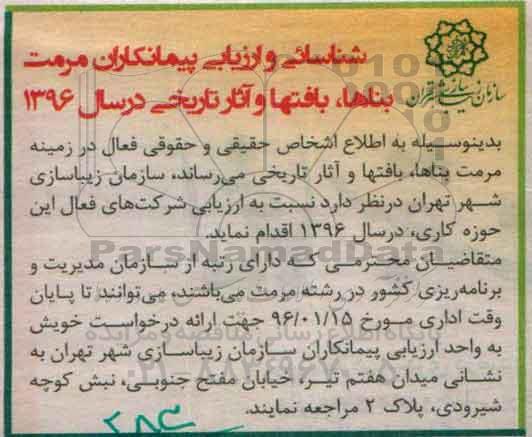 سازمان زیباسازی شهر تهران
شناسائی و ارزیابی پیمانکاران مرمت
بناها، بافتها و آثار تاریخی در سال ۱۳۹۶
بدینوسیله به اطلاع اشخاص حقیقی و حقوقی فعال در زمینه
مرمت بناها، بافتها و آثار تاریخی می‌رساند، سازمان زیباسازی
شهر تهران درنظر دارد نسبت به ارزیابی شرکت‌های فعال این
حوزه کاری، درسال ۱۳۹۶ اقدام نماید.
متقاضیان محترمی که دارای رتبه از سازمان مدیریت و
برنامه‌ریزی کشور در رشته مرمت می‌باشند، می‌توانند تا پایان
وقت اداری مورخ ۹۶/۰۱/۱۵ جهت ارائه درخواست خویش
به واحد ارزیابی پیمانکاران سازمان زیباسازی شهر تهران به
نشانی میدان هفتم تیر، خیابان مفتح جنوبی، نبش کوچه
شیرودی، پلاک ۲ مراجعه نمایند.
ParsNamadData